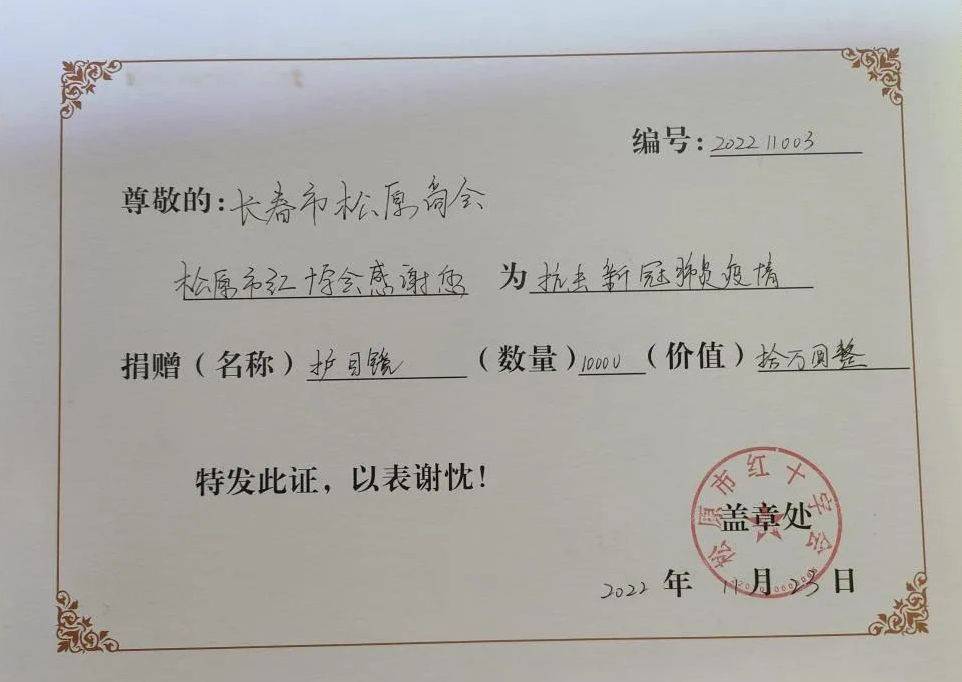 编号:202211003
尊敬的:长春市松原商会
松原市红十字会感谢您 为抗击新冠肺炎疫情
捐赠(名称)护目镜(数量)10000(价值)拾万圆整
特发此证,以表谢忱!
松原市红十字会
盖章处
2022年11月23日